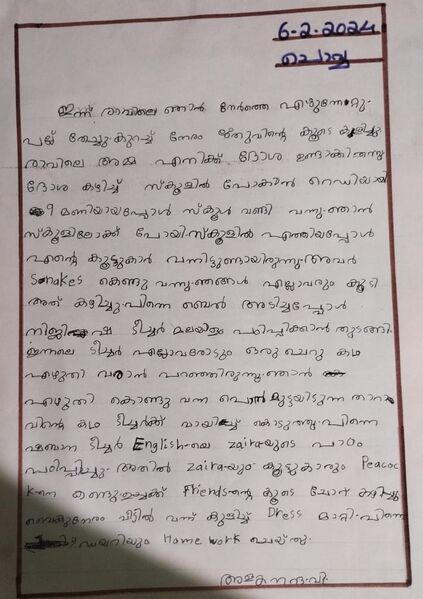 6-2-2024
ചൊവ്വ
ഇന്ന് രാവിലെ ഞാൻ നേർത്തെ എഴുന്നേറ്റു.
പല്ല് തേച്ചു.കുറച്ച് നേരം ഋതുവിന്റെ കൂടെ കളിച്ചു.
രാവിലെ അമ്മ എനിക്ക് ദോശ ഉണ്ടാക്കിതന്നു
ദോശ കഴിച്ച് സ്കൂളിൽ പോകാൻ റെഡിയായി
9 മണിയായപ്പോൾ സ്കൂൾ വണ്ടി വന്നു.ഞാൻ
സ്കൂളിലോക്ക് പോയി.സ്കൂളിൽ എത്തിയപ്പോൾ
എന്റെ കൂട്ടുകാർ വന്നിട്ടുണ്ടായിരുന്നു.അവർ
Snakes കൊണ്ടു വന്നു.ഞങ്ങൾ എല്ലാവരും കൂടി
അത് കഴിച്ചു.പിന്നെ ബെൽ അടിച്ചപ്പോൾ
നിജിഷ ടീച്ചർ മലയാളം പഠിപ്പിക്കാൻ തുടങ്ങി.
ഇന്നലെ ടീച്ചർ എല്ലാവരോടും ഒരു ചെറു കഥ
എഴുതി വരാൻ പറഞ്ഞിരുന്നു.ഞാൻ
എഴുതി കൊണ്ടു വന്ന പൊൻമുട്ടയിടുന്ന താറാ
വിന്റെ കഥ ടീച്ചർക്ക് വായിച്ച് കൊടുത്തു.പിന്നെ
ഷബാന ടീച്ചർ English-യെ zaira-യുടെ പാഠം
പഠിപ്പിച്ചു. അതിൽ zaira-യും കൂട്ടുകാരും Peacoc
k-നെ കണ്ടു.ഉച്ചക്ക് Friends-ന്റെ കൂടെ ചോറ് കഴിച്ചു
വൈകുന്നേരം വീട്ടിൽ വന്ന് കുളിച്ച് Dress മാറ്റി.പിന്നെ
ഡയറിയും Home work ചെയ്തു.
അളകനന്ദ.വി.